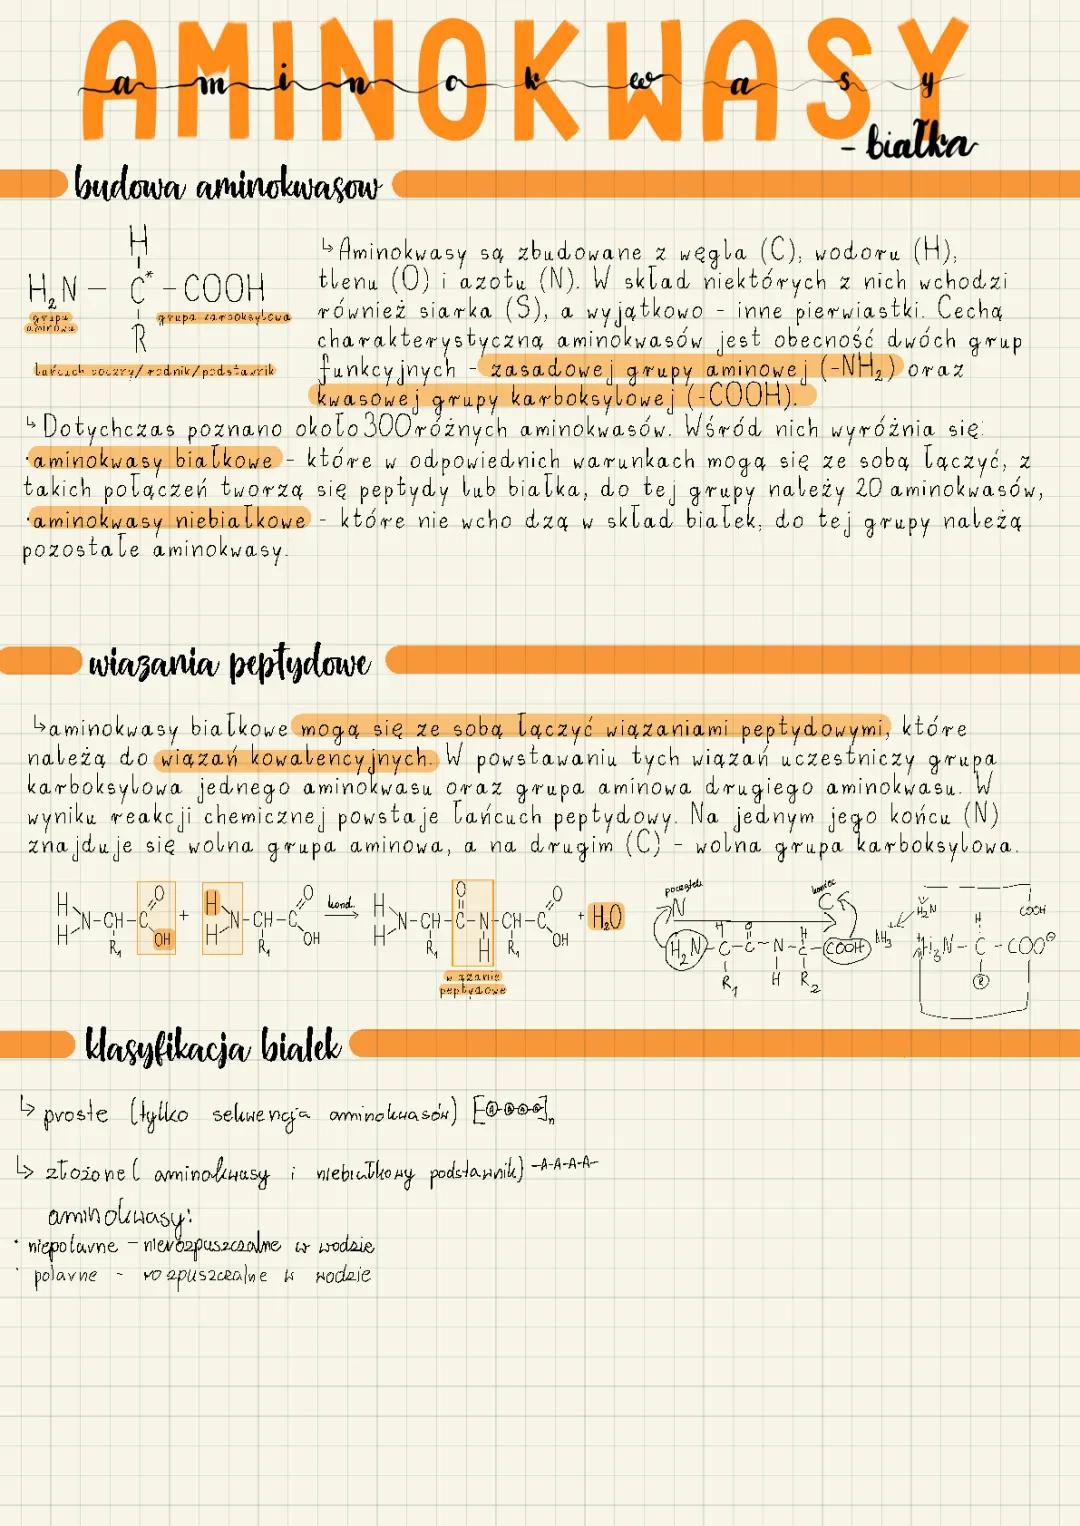 AMINOKWASY
a m i n o k w a s y
- białka
budowa aminokwasow
H
H₂N - C* - COOH
grupa aminowa
grupa karboksylowa
R
łańcuch boczny/rodnik/podstawnik
↳ Aminokwasy są zbudowane z węgla (C), wodoru (H),
tlenu (O) i azotu (N). W skład niektórych z nich wchodzi
również siarka (S), a wyjątkowo - inne pierwiastki. Cechą
charakterystyczną aminokwasów jest obecność dwóch grup
funkcyjnych - zasadowej grupy aminowej (-NH₂) oraz
kwasowej grupy karboksylowej (-COOH).
↳ Dotychczas poznano około 300 różnych aminokwasów. Wśród nich wyróżnia się:
·aminokwasy białkowe - które w odpowiednich warunkach mogą się ze sobą łączyć, z
takich połączeń tworzą się peptydy lub białka, do tej grupy należy 20 aminokwasów,
·aminokwasy niebiałkowe - które nie wcho dzą w skład białek, do tej grupy należą
pozostałe aminokwasy.
wiazania peptydowe
↳aminokwasy białkowe mogą się ze sobą łączyć wiązaniami peptydowymi, które
należą do wiązań kowalencyjnych. W powstawaniu tych wiązań uczestniczy grupa
karboksylowa jednego aminokwasu oraz grupa aminowa drugiego aminokwasu. W
wyniku reakcji chemicznej powstaje łańcuch peptydowy. Na jednym jego końcu (N)
znajduje się wolna grupa aminowa, a na drugim (C) - wolna grupa karboksylowa.
H H N-CH-C O OH R₁ + H H N-CH-C O OH R₁ kond. H H N-CH-C-N-CH-C O O OH R₁ H R₁ + H₂O
wiązanie
peptydowe
początek N koniec C
H₂N-C-C-N-C-COOH
H O H
R₁ H R₂
H₂N COOH
H
H₃N - C - COO⊖
R
klasyfikacja białek
↳ proste (tylko sekwencja aminokwasów) [-A-A-A-A-]n
↳ złożone ( aminokwasy i niebiałkowy podstawnik) -A-A-A-A-
aminokwasy:
· niepolarne - nierozpuszczalne w wodzie
· polarne - rozpuszczalne w wodzie